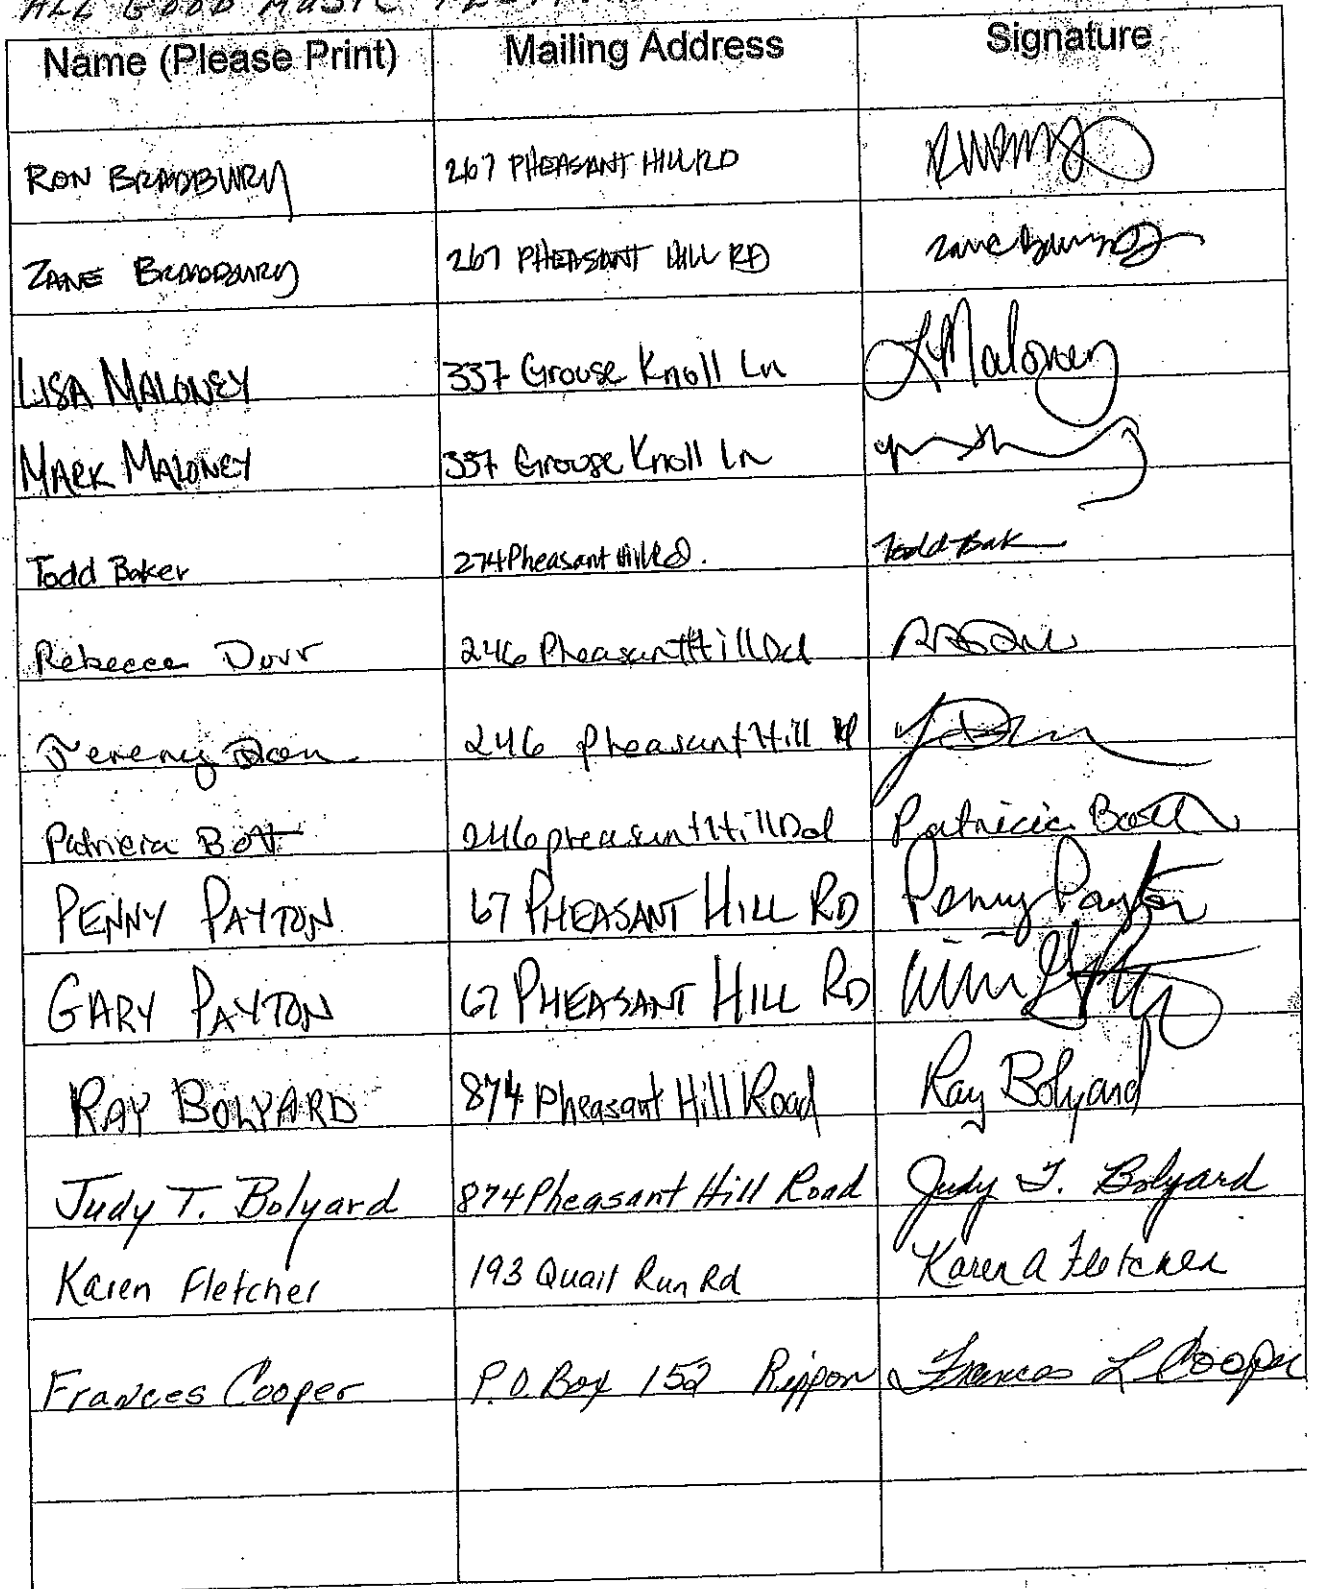 ALL GOOD MUSIC
Name (Please Print) Mailing Address Signature
RON BRADBURY 267 PHEASANT HILL RD
ZANE BRADBURY 267 PHEASANT HILL RD Zane
LISA MALONEY 337 Grouse Knoll Ln L Maloney
MARK MALONEY 337 Grouse Knoll Ln
Todd Baker 274 Pheasant Hill Rd. Todd Bak
Rebecca Dorr 246 Pheasant Hill Rd
Jeremy 246 Pheasant Hill Rd
Patricia Bott 246 pheasant Hill Rd Patricia Bott
PENNY PAYTON 67 PHEASANT HILL RD Penny Payton
GARY PAYTON 67 PHEASANT HILL RD
RAY BOLYARD 874 Pheasant Hill Road Ray Bolyard
Judy T. Bolyard 874 Pheasant Hill Road Judy T. Bolyard
Karen Fletcher 193 Quail Run Rd Karen A Fletcher
Frances Cooper P.O. Box 152 Rippon Frances L Cooper